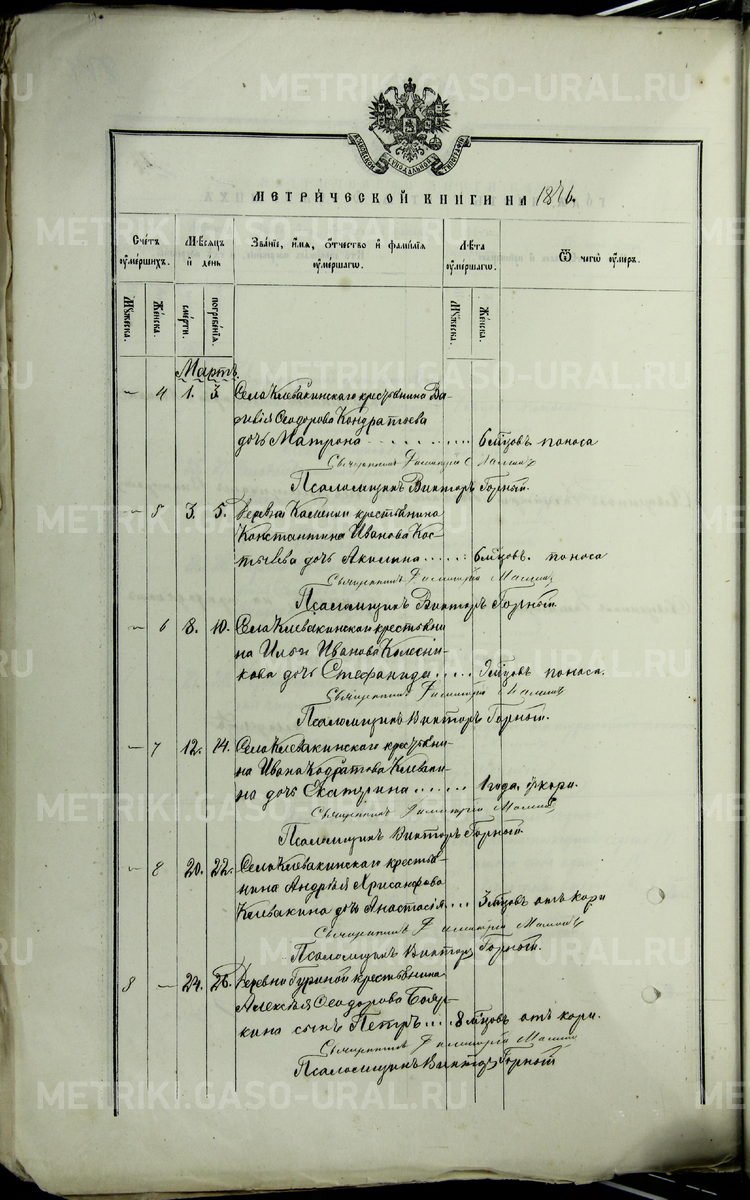 METRIKI.GASO-URAL.RU
МЕТРИ́ЧЕСКОЙ КНИГИ НА 1876.
Счетъ ᲂумершихъ.
Мѣсяцъ и день
Званїе, имя, ѻтчество и фамилїя ᲂумершагѡ.
Лѣта ᲂумершагѡ.
Ѿ чегѡ ᲂумеръ.
Мꙋжеска.
Женска.
смерти.
погребенїя.
Мꙋжеска.
Женска.
Мартъ.
— 4 1. 3. Села Клевакинскаго крестьянина Ва-
силія Ѳеодорова Кондратьева
дочь Матрона 6 мѣсцовъ поноса
Священникъ Димитрій
Псаломщикъ Викторъ Горный.
— 5 3. 5. Деревни Каменки крестьянина
Константина Иванова Кос-
дочь Акилина 6 мѣсцовъ. поноса
Священникъ Димитрій
Псаломщикъ Викторъ Горный.
— 6 8. 10. Села Клевакинскаго крестьяни
на Ильи Иванова Колесни-
кова дочь Стефанида мѣсцовъ поноса.
Священникъ Димитрій
Псаломщикъ Викторъ Горный.
— 7 12. 14. Села Клевакинскаго крестьяни-
на Ивана Кодратова Клеваки-
на дочь Екатерина 1 года кори.
Священникъ Димитрій
Псаломщикъ Викторъ Горный.
— 8 20. 22. Села Клевакинскаго крестья-
нина Андрея Хрисанфова
Клевакина дочь Анастасія 3 мѣсцовъ отъ кори
Священникъ Димитрій
Псаломщикъ Викторъ Горный.
8 — 24. 26. Деревни Гуриной крестьянина
Алексѣя Ѳеодорова Бояр-
кина сынъ Петръ 8 мѣсцовъ отъ кори.
Священникъ Димитрій
Псаломщикъ Викторъ Горный